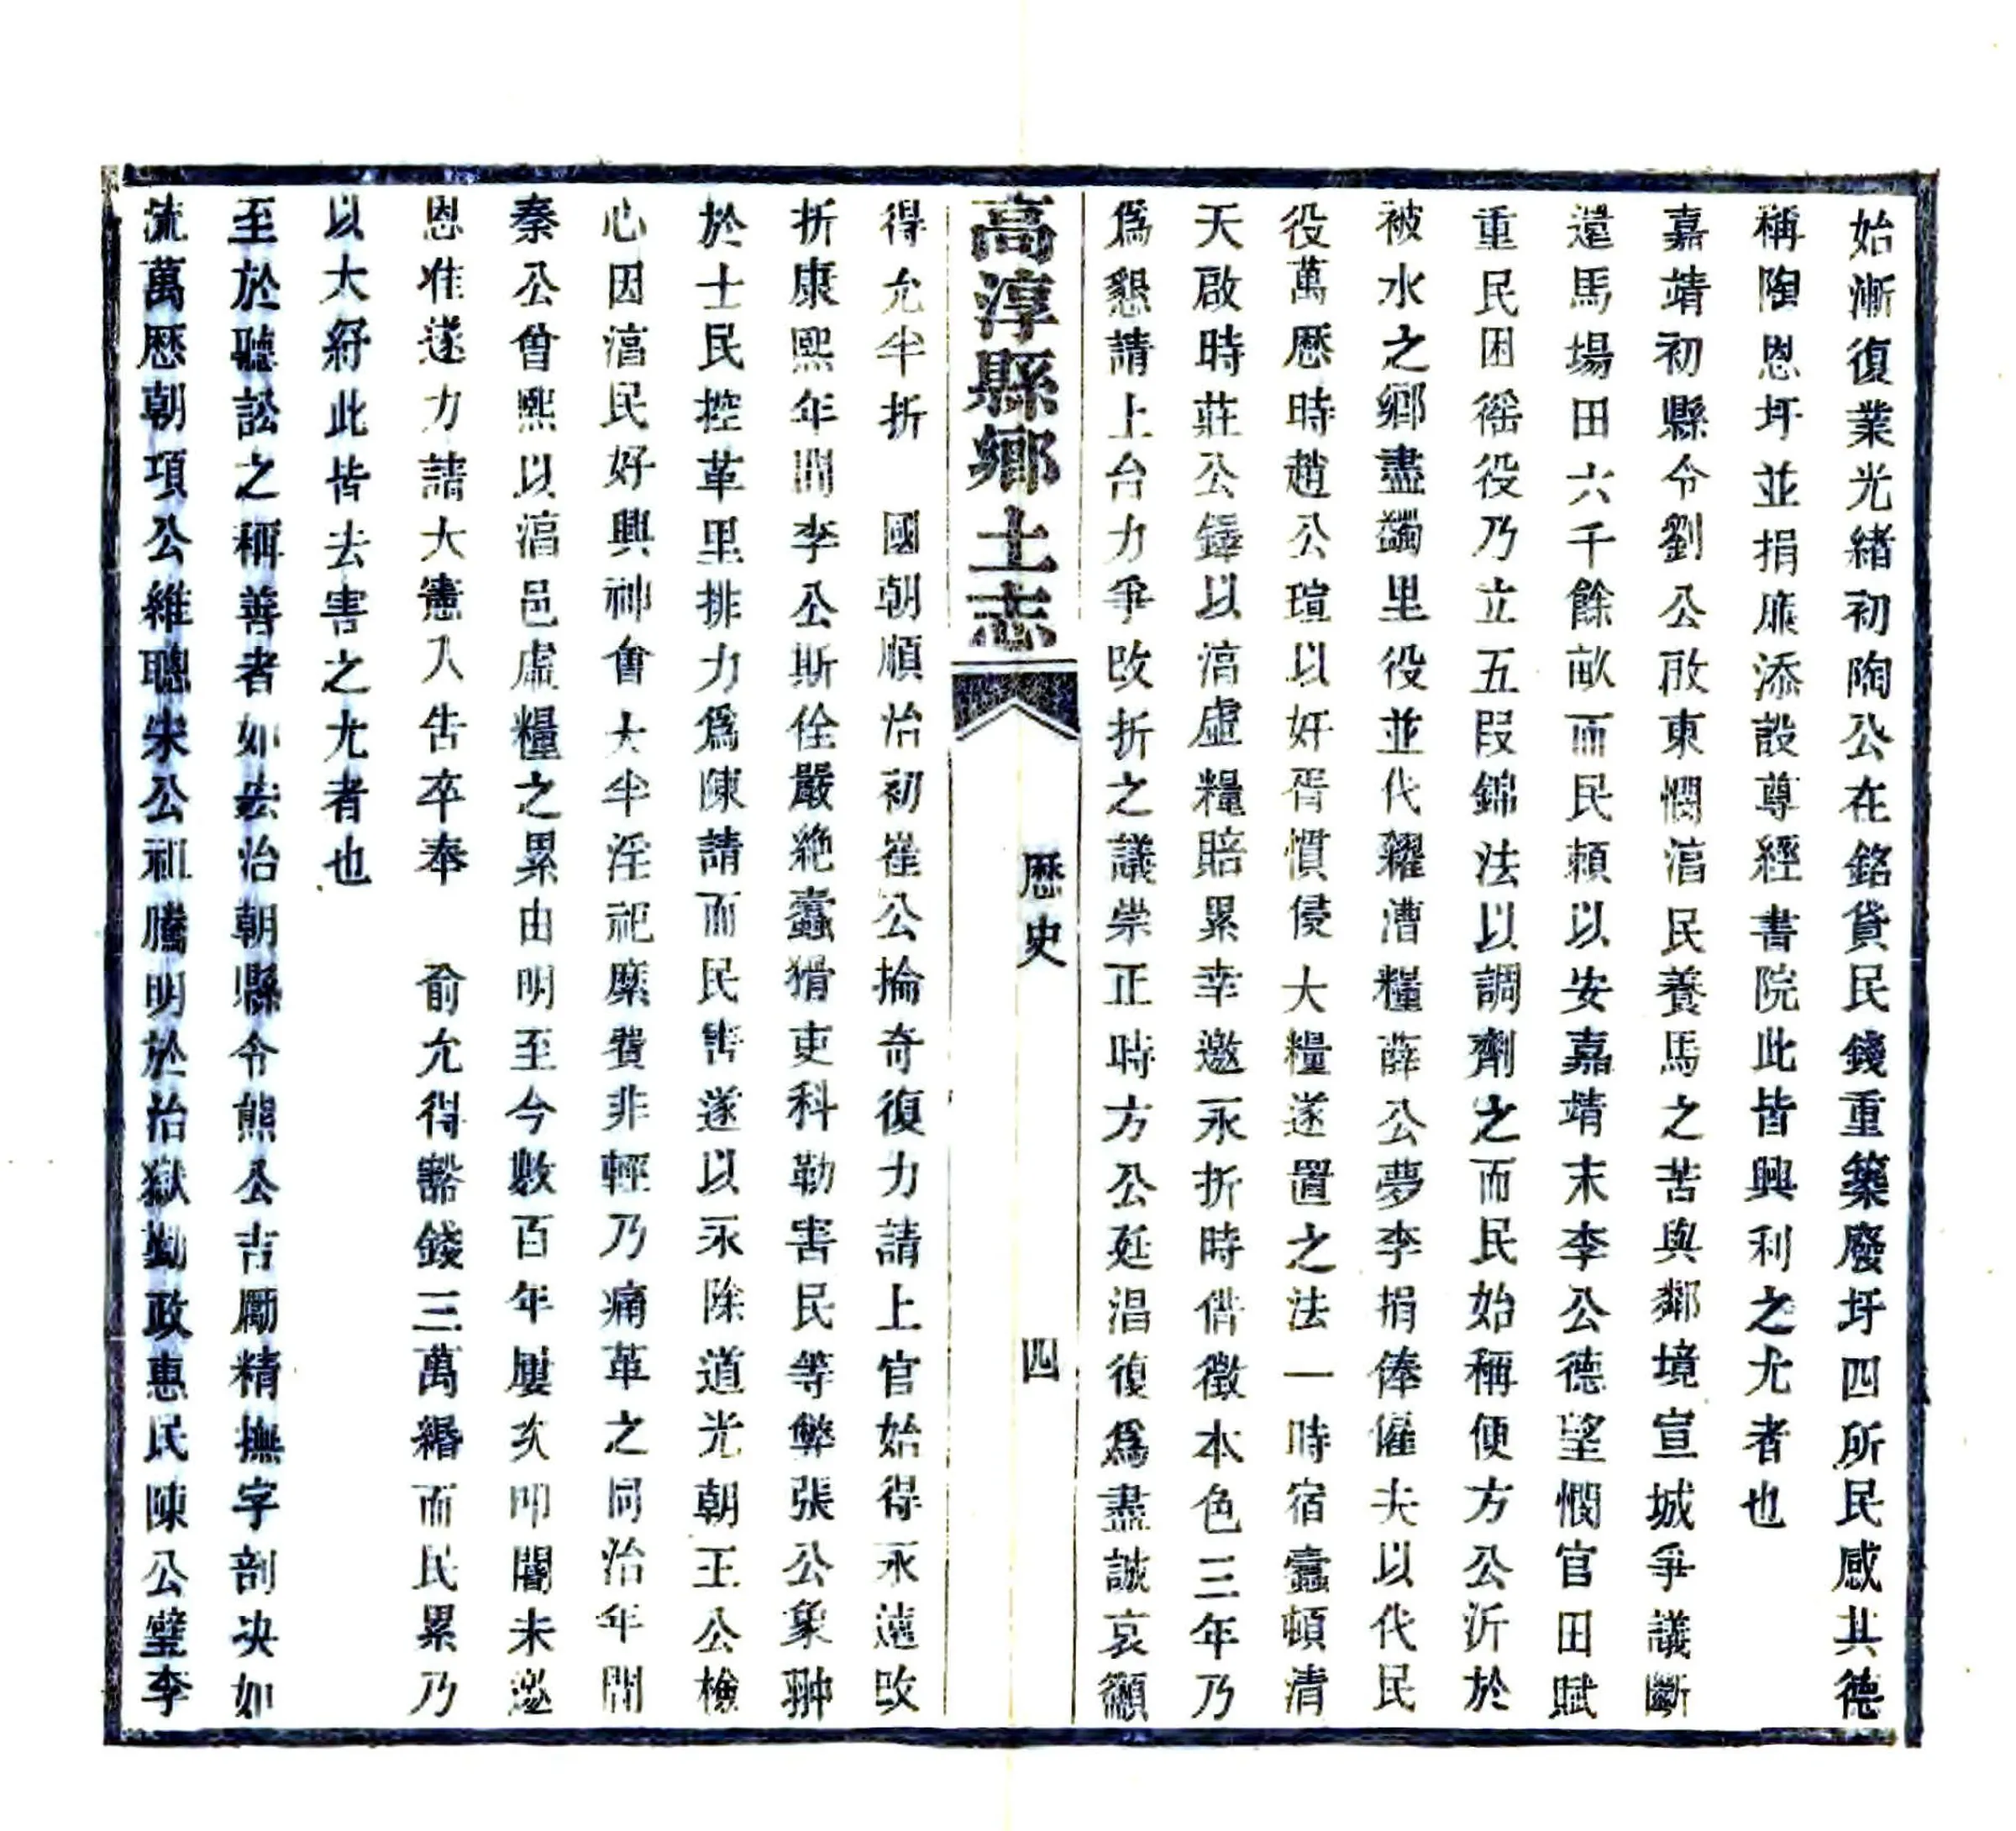 始漸復業光緒初陶公在銘貸民錢重築廢圩四所民感其德
稱陶恩圩並捐廉添設尊經書院此皆興利之尤者也
嘉靖初縣令劉公啟東憫淳民養馬之苦與鄰境宣城爭議斷
還馬場田六千餘畝而民賴以安嘉靖末李公德望憫官田賦
重民困徭役乃立五叚錦法以調劑之而民始稱便方公沂於
被水之鄉盡蠲里役並代糴漕糧薛公夢李捐俸僱夫以代民
役萬厯時趙公瑄以奸胥慣侵大糧遂置之法一時宿蠹頓清
天啟時莊公鐸以淳虛糧賠累幸邀永折時偕徵本色三年乃
爲懇請上台力爭改折之議崇正時方公延湦復爲盡誠哀籲
高淳縣鄉土志
厯史
四
得允半折 國朝順治初崔公掄奇復力請上官始得永遠改
折康熙年間李公斯佺嚴絶蠹猾吏科勒害民等弊張公象翀
於士民控革里排力爲陳請而民害遂以永除道光朝王公檢
心因淳民好興神會大半淫祀糜費非輕乃痛革之同治年間
秦公曾熙以淳邑虛糧之累由明至今數百年屢次叩閽未邀
恩准遂力請大憲入告卒奉 俞允得豁錢三萬緡而民累乃
以大紓此皆去害之尤者也
至於聽訟之稱善者如宏治朝縣令熊公吉勵精撫字剖決如
流萬厯朝項公維聰宋公祖騰明於治獄勤政惠民陳公璧李